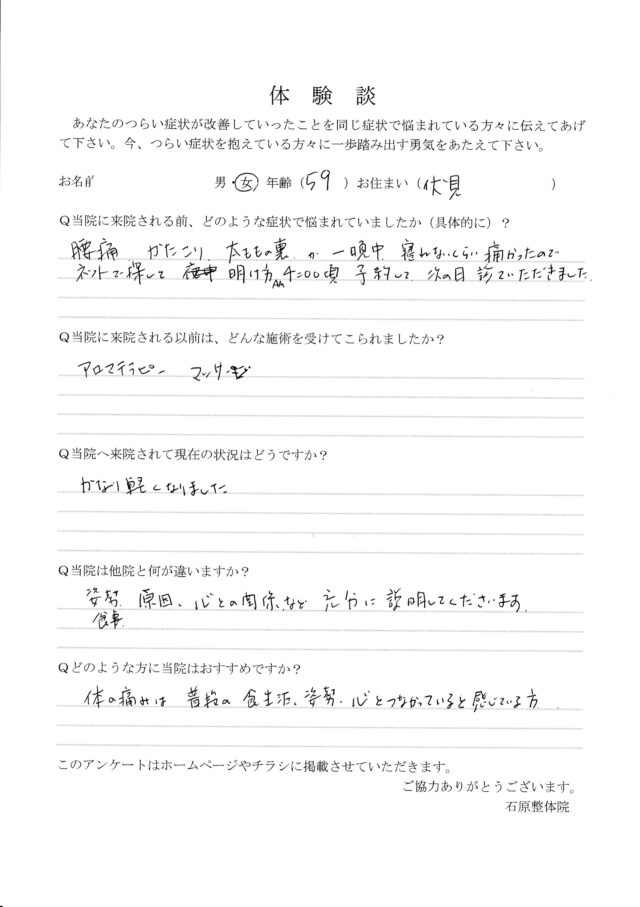 体験談
あなたのつらい症状が改善していったことを同じ症状で悩まれている方々に伝えてあげ
て下さい。今、つらい症状を抱えている方々に一歩踏み出す勇気をあたえて下さい。
お名前 男・女 年齢（59）お住まい（伏見）
Q当院に来院される前、どのような症状で悩まれていましたか（具体的に）？
腰痛 かたこり、太ももの裏 が 一晩中 寝れないくらい 痛かったので
ネットで探して 明け方AM4:00頃 予約して 次の日 診ていただきました。
Q当院に来院される以前は、どんな施術を受けてこられましたか？
アロマテラピー マッサージ
Q当院へ来院されて現在の状況はどうですか？
かなり軽くなりました
Q当院は他院と何が違いますか？
姿勢、原因、心との関係など 充分に 説明してくださいます。
食事
Qどのような方に当院はおすすめですか？
体の痛みは 普段の 食生活、姿勢、心とつながっていると感じている方
このアンケートはホームページやチラシに掲載させていただきます。
ご協力ありがとうございます。
石原整体院